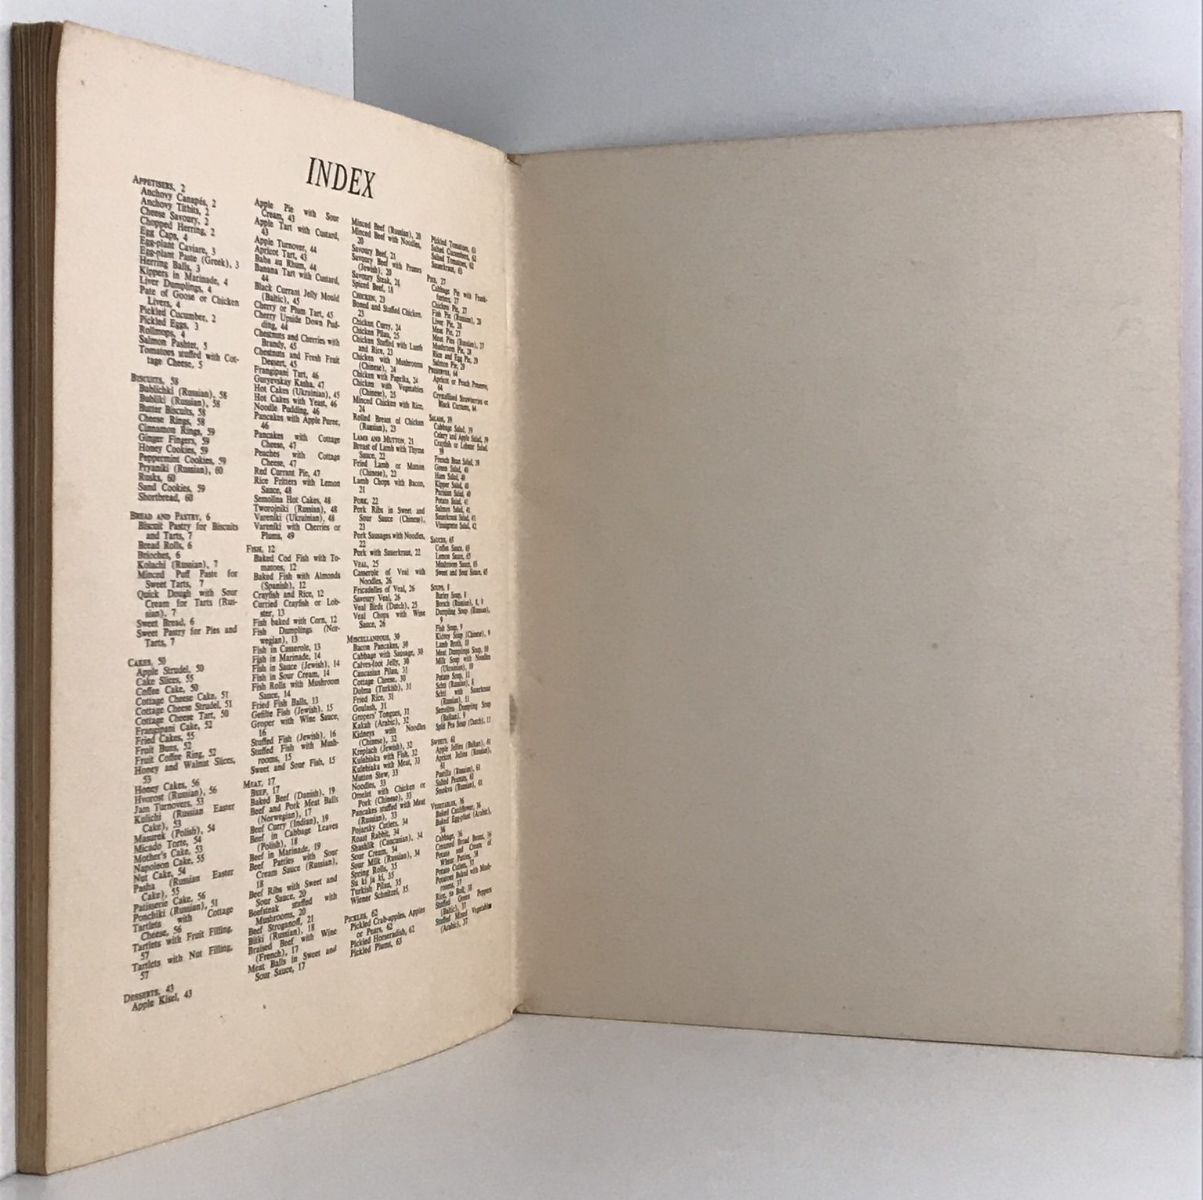 INDEX
APPETISERS, 2
Anchovy Canapés, 2
Anchovy Titbits, 2
Cheese Savoury, 2
Chopped Herring, 2
Egg Caps, 4
Egg-plant Caviare, 3
Egg-plant Paste (Greek), 3
Herring Balls, 3
Kippers in Marinade, 4
Liver Dumplings, 4
Pate of Goose or Chicken
Livers, 4
Pickled Cucumber, 2
Pickled Eggs, 3
Rollmops, 4
Salmon Pashtet, 5
Tomatoes stuffed with Cot-
tage Cheese, 5
BISCUITS, 58
Bublichki (Russian), 58
Bubliki (Russian), 58
Butter Biscuits, 58
Cheese Rings, 58
Cinnamon Rings, 59
Ginger Fingers, 59
Honey Cookies, 59
Peppermint Cookies, 59
Pryaniki (Russian), 60
Rusks, 60
Sand Cookies, 59
Shortbread, 60
BREAD AND PASTRY, 6
Biscuit Pastry for Biscuits
and Tarts, 7
Bread Rolls, 6
Brioches, 6
Kolachi (Russian), 7
Minced Puff Paste for
Sweet Tarts, 7
Quick Dough with Sour
Cream for Tarts (Rus-
sian), 7
Sweet Bread, 6
Sweet Pastry for Pies and
Tarts, 7
CAKES, 50
Apple Strudel, 50
Cake Slices, 55
Coffee Cake, 50
Cottage Cheese Cake, 51
Cottage Cheese Strudel, 51
Cottage Cheese Tart, 50
Frangipani Cake, 52
Fried Cakes, 55
Fruit Buns, 52
Fruit Coffee Ring, 52
Honey and Walnut Slices,
53
Honey Cakes, 56
Hvorost (Russian), 56
Jam Turnovers, 53
Kulichi (Russian Easter
Cake), 53
Masurek (Polish), 54
Micado Torte, 54
Mother's Cake, 53
Napoleon Cake, 55
Nut Cake, 54
Pasha (Russian Easter
Cake), 55
Patisserie Cake, 56
Ponchiki (Russian), 51
Tartlets with Cottage
Cheese, 56
Tartlets with Fruit Filling,
57
Tartlets with Nut Filling,
57
DESSERTS, 43
Apple Kisel, 43
Apple Pie with Sour
Cream, 43
Apple Tart with Custard,
43
Apple Turnover, 44
Apricot Tart, 43
Baba au Rhum, 44
Banana Tart with Custard,
44
Black Currant Jelly Mould
(Baltic), 45
Cherry or Plum Tart, 45
Cherry Upside Down Pud-
ding, 44
Chestnuts and Cherries with
Brandy, 45
Chestnuts and Fresh Fruit
Dessert, 45
Frangipani Tart, 46
Guryevskay Kasha, 47
Hot Cakes (Ukrainian), 45
Hot Cakes with Yeast, 46
Noodle Pudding, 46
Pancakes with Apple Puree,
46
Pancakes with Cottage
Cheese, 47
Peaches with Cottage
Cheese, 47
Red Currant Pie, 47
Rice Fritters with Lemon
Sauce, 48
Semolina Hot Cakes, 48
Tworojniki (Russian), 48
Vareniki (Ukrainian), 48
Vareniki with Cherries or
Plums, 49
FISH, 12
Baked Cod Fish with To-
matoes, 12
Baked Fish with Almonds
(Spanish), 12
Crayfish and Rice, 12
Curried Crayfish or Lob-
ster, 13
Fish baked with Corn, 12
Fish Dumplings (Nor-
wegian), 13
Fish in Casserole, 13
Fish in Marinade, 14
Fish in Sauce (Jewish), 14
Fish in Sour Cream, 14
Fish Rolls with Mushroom
Sauce, 14
Fried Fish Balls, 13
Gefilte Fish (Jewish), 15
Groper with Wine Sauce,
16
Stuffed Fish (Jewish), 16
Stuffed Fish with Mush-
rooms, 15
Sweet and Sour Fish, 15
MEAT, 17
BEEF, 17
Baked Beef (Danish), 19
Beef and Pork Meat Balls
(Norwegian), 17
Beef Curry (Indian), 19
Beef in Cabbage Leaves
(Polish), 18
Beef in Marinade, 19
Beef Patties with Sour
Cream Sauce (Russian),
18
Beef Ribs with Sweet and
Sour Sauce, 20
Beefsteak stuffed with
Mushrooms, 20
Beef Stroganoff, 21
Bitki (Russian), 18
Braised Beef with Wine
(French), 17
Meat Balls in Sweet and
Sour Sauce, 17
Minced Beef (Russian), 20
Minced Beef with Noodles,
20
Savoury Beef, 21
Savoury Beef with Prunes
(Jewish), 20
Savoury Steak, 21
Spiced Beef, 18
CHICKEN, 23
Boned and Stuffed Chicken,
23
Chicken Curry, 24
Chicken Pilau, 25
Chicken Stuffed with Lamb
and Rice, 23
Chicken with Mushrooms
(Chinese), 24
Chicken with Paprika, 24
Chicken with Vegetables
(Chinese), 25
Minced Chicken with Rice,
24
Rolled Breast of Chicken
(Russian), 23
LAMB AND MUTTON, 21
Breast of Lamb with Thyme
Sauce, 22
Fried Lamb or Mutton
(Chinese), 22
Lamb Chops with Bacon,
21
PORK, 22
Pork Ribs in Sweet and
Sour Sauce (Chinese),
23
Pork Sausages with Noodles,
22
Pork with Sauerkraut, 22
VEAL, 25
Casserole of Veal with
Noodles, 26
Fricadelles of Veal, 26
Savoury Veal, 26
Veal Birds (Dutch), 25
Veal Chops with Wine
Sauce, 26
MISCELLANEOUS, 30
Bacon Pancakes, 30
Cabbage with Sausage, 30
Calves-foot Jelly, 30
Caucasian Pilau, 31
Cottage Cheese, 30
Dolma (Turkish), 31
Fried Rice, 31
Goulash, 31
Gropers' Tongues, 31
Kakah (Arabic), 32
Kidneys with Noodles
(Chinese), 32
Kreplach (Jewish), 32
Kulebiaka with Fish, 32
Kulebiaka with Meat, 33
Mutton Stew, 33
Noodles, 33
Omelet with Chicken or
Pork (Chinese), 33
Pancakes stuffed with Meat
(Russian), 33
Pojarsky Cutlets, 34
Roast Rabbit, 34
Shashlik (Caucasian), 34
Sour Cream, 34
Sour Milk (Russian), 34
Spring Rolls, 35
Su ki ja ki, 35
Turkish Pilau, 35
Wiener Schnitzel, 35
PICKLES, 62
Pickled Crab-apples, Apples
or Pears, 62
Pickled Horseradish, 62
Pickled Plums, 63
Pickled Tomatoes, 63
Salted Cucumbers, 62
Salted Tomatoes, 62
Sauerkraut, 63
PIES, 27
Cabbage Pie with Frank-
furters, 27
Chicken Pie, 27
Fish Pie (Russian), 28
Liver Pie, 28
Meat Pie, 27
Meat Pies (Russian), 27
Mushroom Pie, 28
Rice and Egg Pie, 29
Salmon Pie, 29
PRESERVES, 64
Apricot or Peach Preserve,
64
Crystallised Strawberries or
Black Currants, 64
SALADS, 39
Cabbage Salad, 39
Celery and Apple Salad, 39
Crayfish or Lobster Salad,
39
French Bean Salad, 39
Green Salad, 40
Ham Salad, 40
Kipper Salad, 40
Parisian Salad, 40
Potato Salad, 41
Salmon Salad, 41
Sauerkraut Salad, 41
Vinaigrette Salad, 42
SAUCES, 65
Coffee Sauce, 65
Lemon Sauce, 65
Mushroom Sauce, 65
Sweet and Sour Sauce, 65
SOUPS, 8
Barley Soup, 8
Borsch (Russian), 8, 9
Dumpling Soup (Russian),
9
Fish Soup, 9
Kidney Soup (Chinese), 9
Lamb Broth, 10
Meat Dumplings Soup, 10
Milk Soup with Noodles
(Ukrainian), 10
Potato Soup, 11
Schti (Russian), 8
Schti with Sauerkraut
(Russian), 11
Semolina Dumpling Soup
(Balkan), 9
Split Pea Soup (Dutch), 11
SWEETS, 61
Apple Jellies (Balkan), 61
Apricot Jellies (Russian),
61
Pastila (Russian), 61
Salted Peanuts, 61
Smokva (Russian), 61
VEGETABLES, 36
Baked Cauliflower, 36
Baked Egg-plant (Arabic),
36
Cabbage, 36
Creamed Broad Beans, 36
Potato and Cream of
Wheat Patties, 38
Potato Cutlets, 37
Potatoes Baked with Mush-
rooms, 37
Rice, to Boil, 38
Stuffed Green Peppers
(Baltic), 37
Stuffed Mixed Vegetables
(Arabic), 37